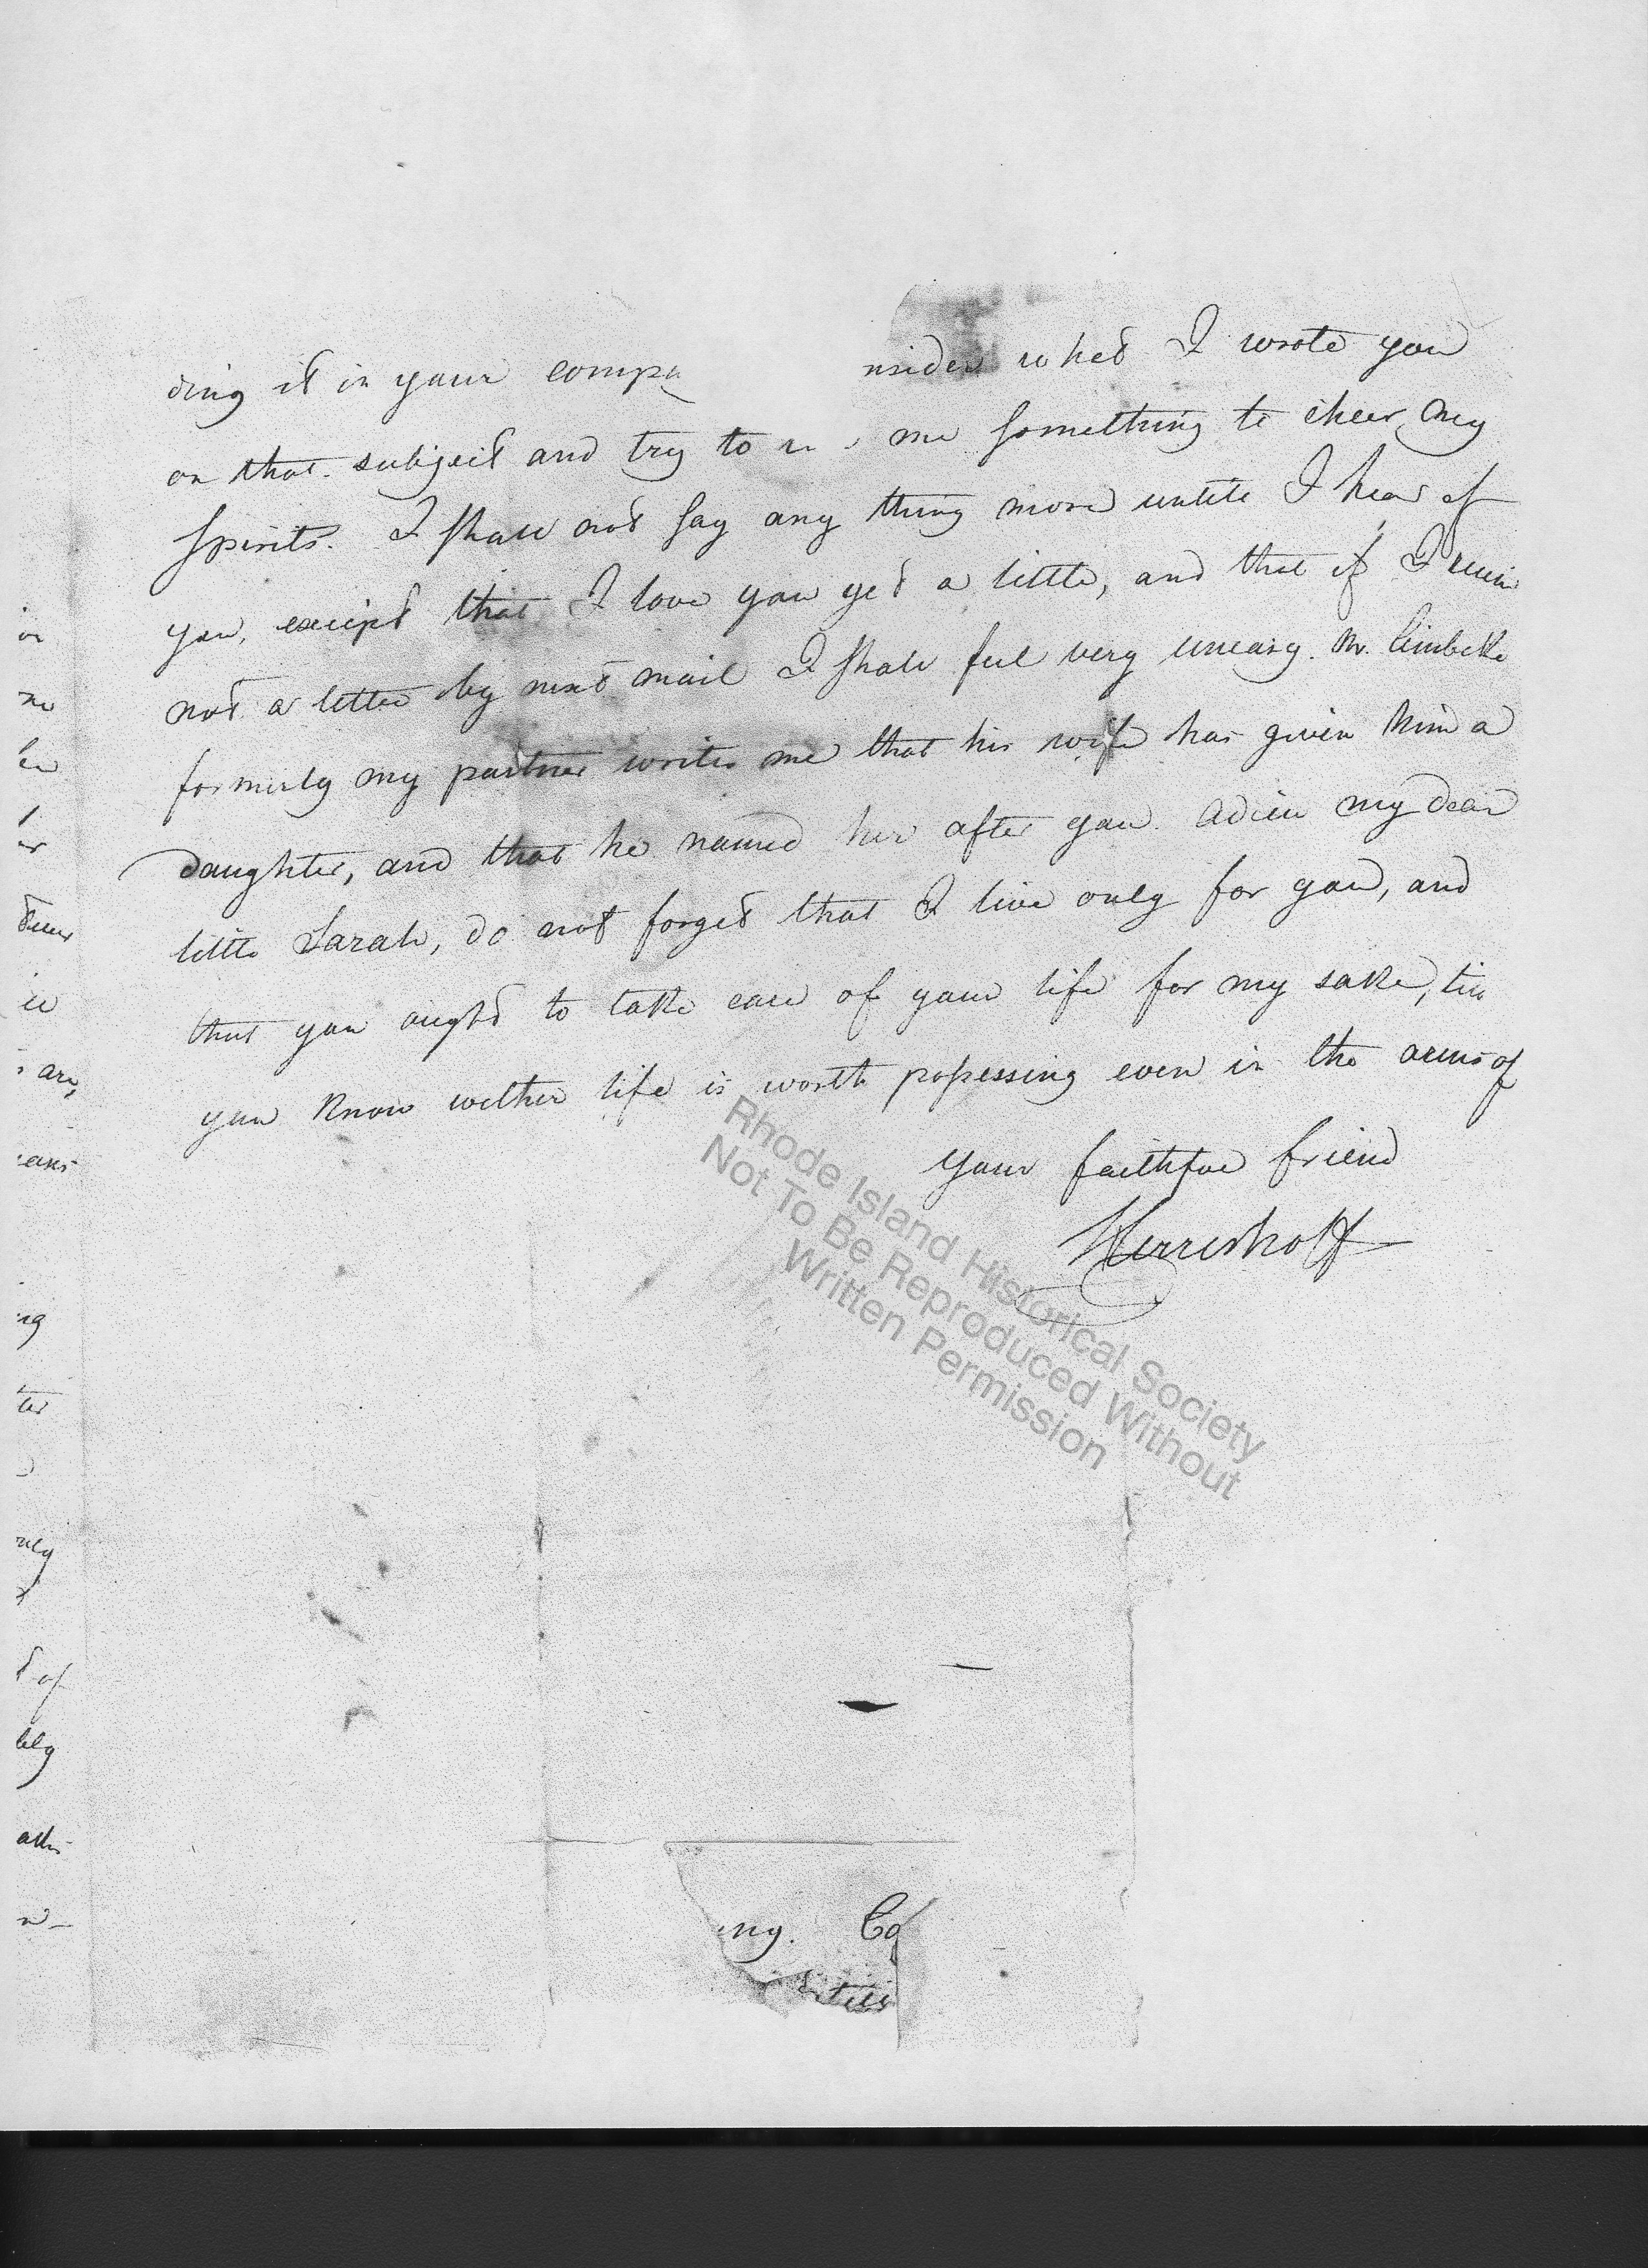 ding it in your compa nsider what I wrote you
on that subject and try to me something to cheer my
spirits. I shall not say any thing more untill I hear of
you, except that I love you yet a little, and that if I receive
not a letter by next mail I shall feel very uneasy. Mr. Limbeke
formerly my partner writes me that his wife has given him a
daughter, and that he named her after you. Adieu my dear
little Sarah, do not forget that I live only for you, and
that you ought to take care of your life for my sake, till
you know wether life is worth possessing even in the arms of
your faithful friend
Herreshoff
Rhode Island Historical Society
Not To Be Reproduced Without
Written Permission
ng. Co